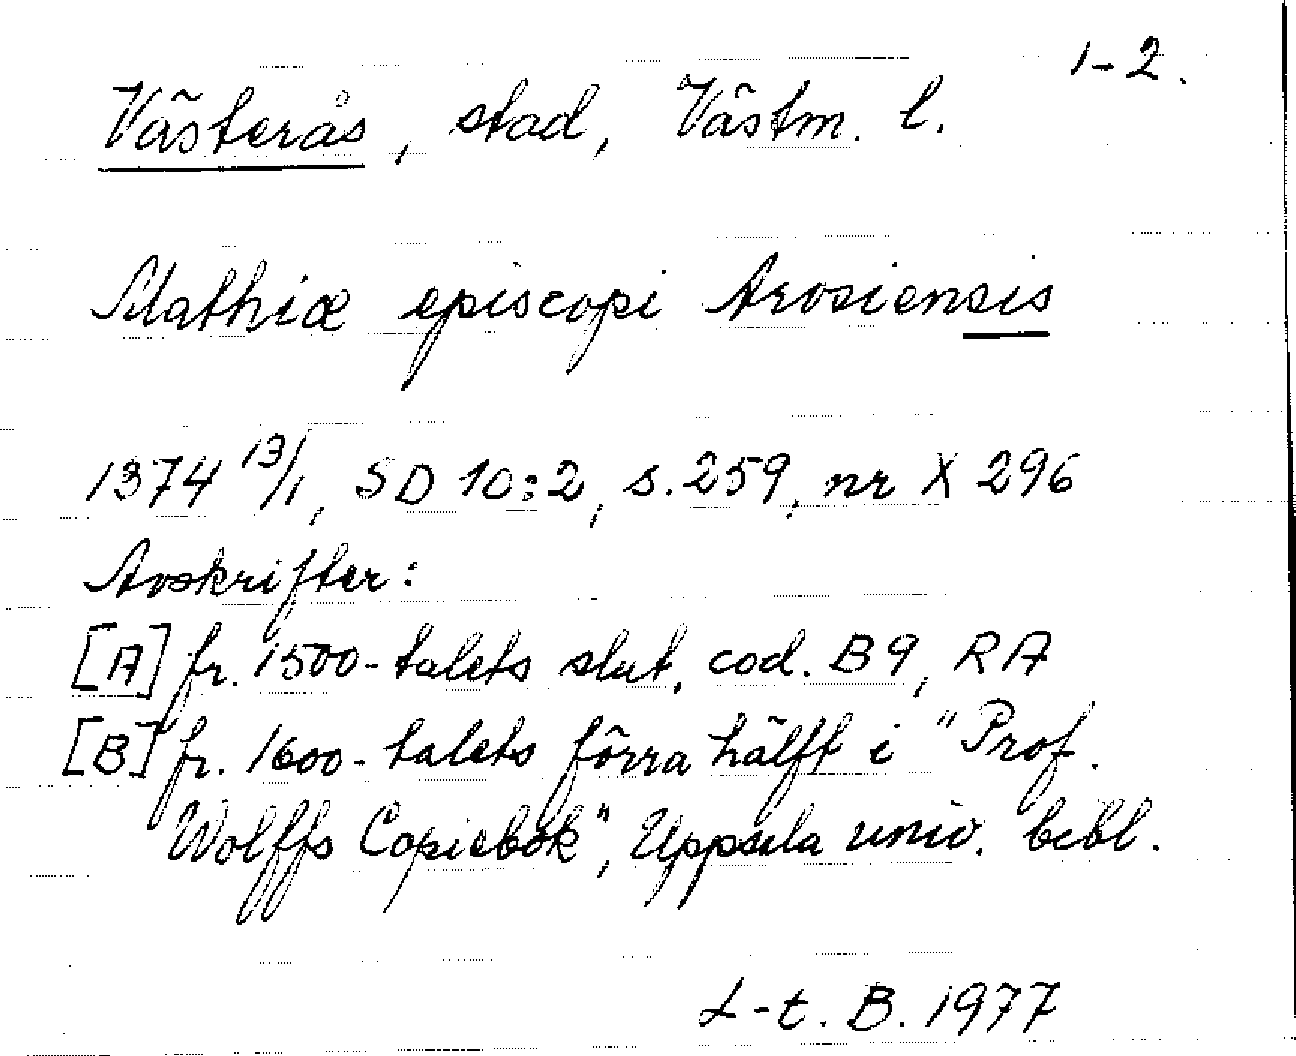 1-2.
Västerås, stad, Västm. l.
Mathiæ episcopi Arosiensis
1374 13/1, SD 10:2, s. 259, nr X 296
Avskrifter:
[A] fr. 1500-talets slut, cod. B9, RA
[B] fr. 1600-talets förra hälft i "Prof.
Wolffs Copiebok", Uppsala univ. bibl.
L-t. B. 1977